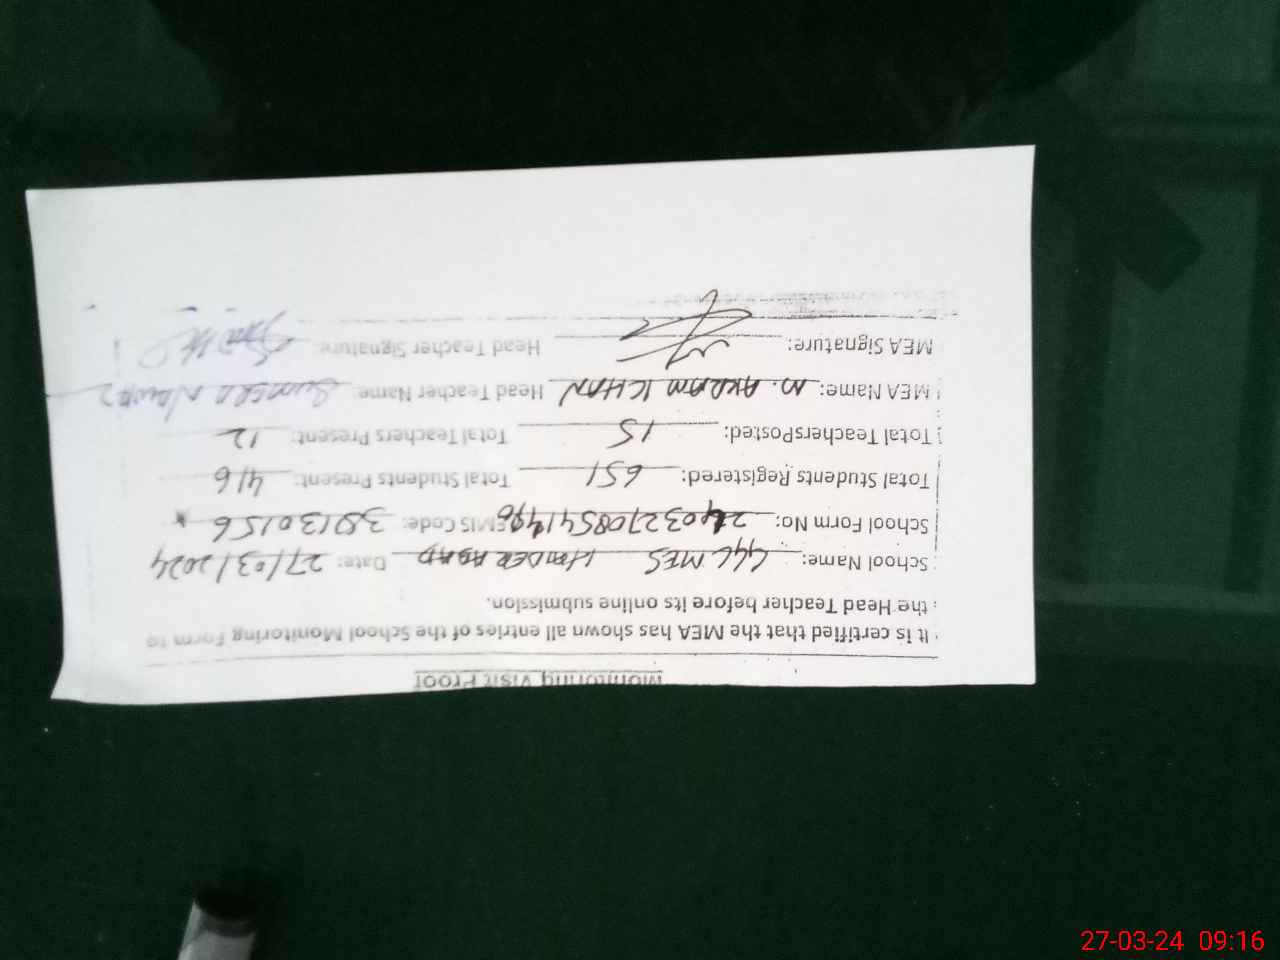 Monitoring Visit Proof
It is certified that the MEA has shown all entries of the School Monitoring Form to
the Head Teacher before its online submission.
School Name: GGC MES HAIDER ABAD Date: 27/03/2024
School Form No: EMIS Code: 38130156
Total Students Registered: 651 Total Students Present: 416
Total TeachersPosted: 15 Total Teachers Present: 12
MEA Name: M. AKRAM KHAN Head Teacher Name: Sumera Nawaz
MEA Signature: Head Teacher Signature:
27-03-24 09:16